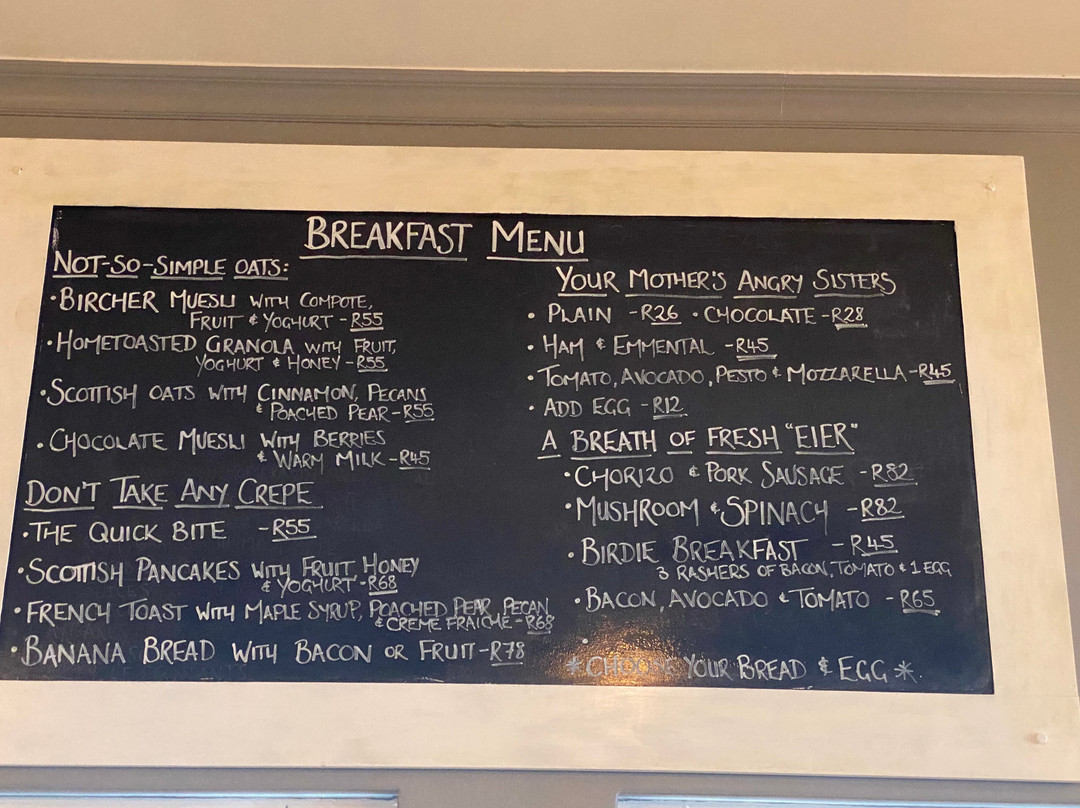 BREAKFAST MENU
NOT-SO-SIMPLE OATS:
• BIRCHER MUESLI WITH COMPOTE,
FRUIT & YOGHURT - R55
• HOMETOASTED GRANOLA WITH FRUIT,
YOGHURT & HONEY - R55
• SCOTTISH OATS WITH CINNAMON, PECANS
& POACHED PEAR - R55
• CHOCOLATE MUESLI WITH BERRIES
& WARM MILK - R45
DON'T TAKE ANY CREPE
• THE QUICK BITE - R55
• SCOTTISH PANCAKES WITH FRUIT, HONEY
& YOGHURT - R68
• FRENCH TOAST WITH MAPLE SYRUP, POACHED PEAR, PECAN
& CREME FRAICHE - R68
• BANANA BREAD WITH BACON OR FRUIT - R78
YOUR MOTHER'S ANGRY SISTERS
• PLAIN - R26 • CHOCOLATE - R28
• HAM & EMMENTAL - R45
• TOMATO, AVOCADO, PESTO & MOZZARELLA - R45
• ADD EGG - R12
A BREATH OF FRESH "EIER"
• CHORIZO & PORK SAUSAGE - R82
• MUSHROOM & SPINACH - R82
• BIRDIE BREAKFAST - R45
3 RASHERS OF BACON, TOMATO & 1 EGG
• BACON, AVOCADO & TOMATO - R65
•
* CHOOSE YOUR BREAD & EGG *